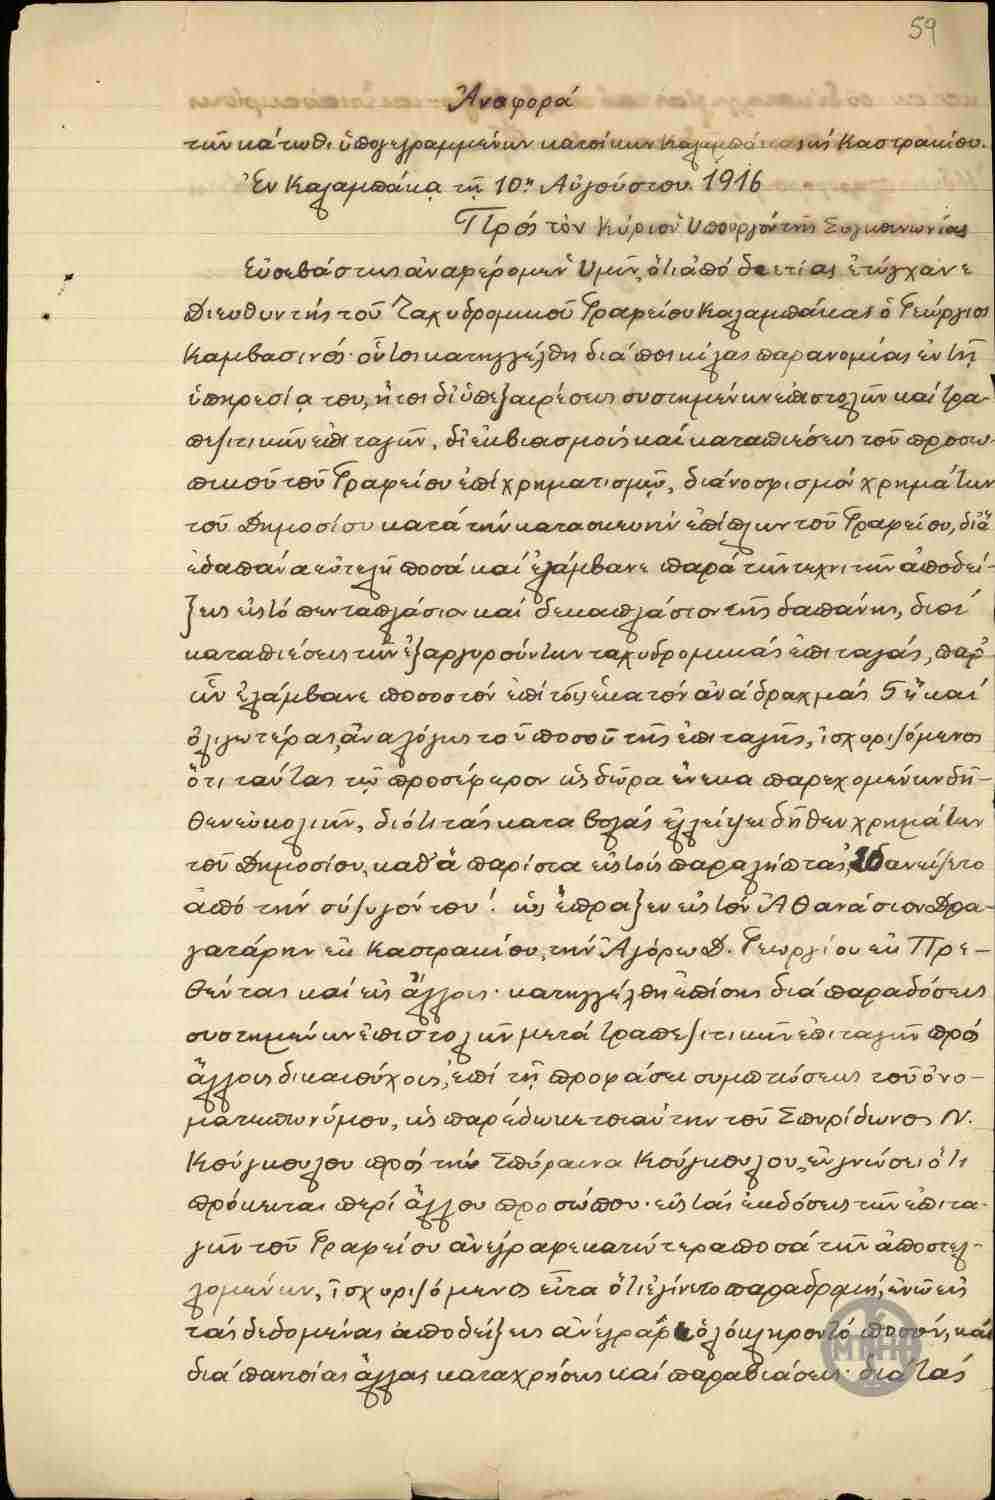 59
Ἀναφορά
τῶν κάτωθι ὑπογεγραμμένων κατοίκων Καλαμπάκας καὶ Καστρακίου.
Ἐν Καλαμπάκᾳ τῇ 10ῃ Αὐγούστου 1916
Πρός τὸν Κύριον Ὑπουργὸν τῆς Συγκοινωνίας
Εὐσεβάστως ἀναφέρομεν Ὑμῖν, ὅτι ἀπό διετίας ἐτύγχανε
Διευθυντής τοῦ Ταχυδρομικοῦ Γραφείου Καλαμπάκας ὁ Γεώργιος
Καμβασινός· οὗτος κατηγγέλθη διά ποικίλας παρανομίας ἐν τῇ
ὑπηρεσίᾳ του, ἤτοι δι' ὑπεξαιρέσεις συστημένων ἐπιστολῶν καί τρα-
πεζιτικῶν ἐπιταγῶν, δι' ἐκβιασμούς καί καταπιέσεις τοῦ προσω-
πικοῦ τοῦ Γραφείου ἐπί χρηματισμῷ, διά νοσφισμόν χρημάτων
τοῦ Δημοσίου κατά τήν κατασκευήν ἐπίπλων τοῦ Γραφείου, δι' ἅ
ἐδαπάνα εὐτελῆ ποσά καί ἐλάμβανε παρά τῶν τεχνιτῶν ἀποδεί-
ξεις εἰς τό πενταπλάσιον καί δεκαπλάσιον τῆς δαπάνης, διά
καταπιέσεις τῶν ἐξαργυρούντων ταχυδρομικάς ἐπιταγάς, παρ'
ὧν ἐλάμβανε ποσοστόν ἐπί τοῖς ἑκατόν ἀνά δραχμάς 5 ἤ καί
ὀλιγωτέρας, ἀναλόγως τοῦ ποσοῦ τῆς ἐπιταγῆς, ἰσχυριζόμενος
ὅτι ταύτας τῷ προσέφερον ὡς δῶρα ἕνεκα παρεχομένων δῆ-
θεν εὐκολιῶν, διότι τάς καταβολάς ἐλλείψει δῆθεν χρημάτων
τοῦ Δημοσίου, καθ' ἅ παρίστα εἰς τούς παραλήπτας, ἐδανείζετο
ἀπό τήν σύζυγόν του! ὡς ἔπραξεν εἰς τόν Ἀθανάσιον Δρα-
γατάρην ἐκ Καστρακίου, τήν Ἀγόρω Δ. Γεωργίου ἐκ Πρε-
θέντας καί εἰς ἄλλους· κατηγγέλθη ἐπίσης διά παραδόσεις
συστημένων ἐπιστολῶν μετά τραπεζιτικῶν ἐπιταγῶν πρός
ἄλλους δικαιούχους, ἐπί τῇ προφάσει συμπτώσεως τοῦ ὀνο-
ματεπωνύμου, ὡς παρέδωκε τοιαύτην τοῦ Σπυρίδωνος Ν.
Κούγκουλου πρός τήν Σπύραινα Κούγκουλου, ἐν γνώσει ὅτι
πρόκειται περί ἄλλου προσώπου· εἰς τάς ἐκδόσεις τῶν ἐπιτα-
γῶν τοῦ Γραφείου ἀνέγραφε κατώτερα ποσά τῶν ἀποστελ-
λομένων, ἰσχυριζόμενος εἶτα ὅτι ἐγίνετο παραδρομή, ἐνῶ εἰς
τάς δεδομένας ἀποδείξεις ἀνέγραφε ὁλόκληρον τό ποσόν, καί
διά παντοίας ἄλλας καταχρήσεις καί παραβιάσεις· διά τάς